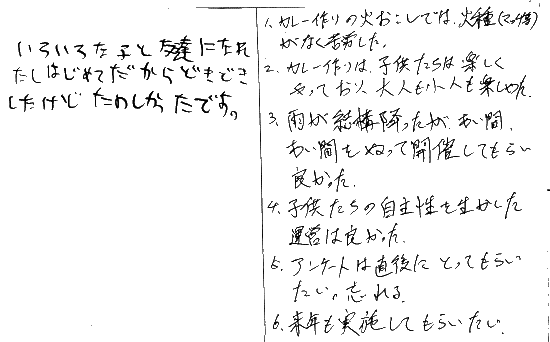 いろいろな子と友達になれ
たしはじめてだからどきどき
したけど たのしかったです。
1. カレー作りの火おこしでは、火種(マッチ等)
がなく苦労した。
2. カレー作りは、子供たちは楽しく
やっており、大人も小人も楽しめた。
3. 雨が結構降ったが、あい間、
あい間をぬって開催してもらい
良かった。
4. 子供たちの自主性を生かした
運営は良かった。
5. アンケートは直後にとってもらい
たい。忘れる。
6. 来年も実施してもらいたい。